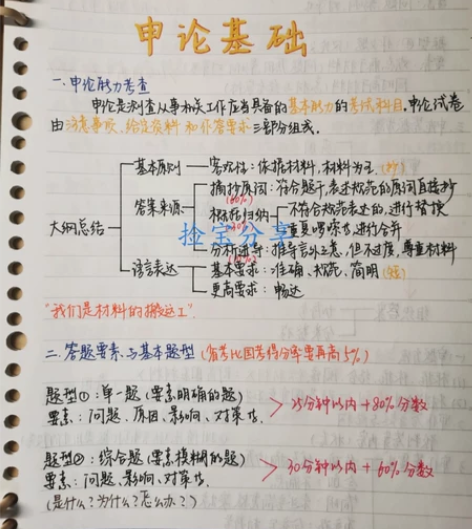 申论基础
一.申论能力考查
申论是测查从事机关工作应当具备的基本能力的考试科目,申论试卷
由注意事项、给定资料和作答要求三部分组成。
大纲总结
基本原则 — 客观性:依据材料,材料为王.(抄)
答案来源
摘抄原词:符合题干,表述规范的原词直接抄
(60%)
概括归纳
不符合规范表达的,进行替换
重复啰嗦的,进行合并
(30%)
分析推导:推导言外之意,但不过度,尊重材料
(10%)
语言表达
基本要求:准确、规范、简明
更高要求:畅达
捡宝分享
"我们是材料的搬运工".
二.答题要素与基本题型(省考比国考得分要再高5%)
题型①:单一题(要素明确的题)
要素:问题、原因、影响、对策等.
> 25分钟以内+80%分数
题型②:综合题(要素模糊的题)
要素:问题、影响、对策等.
(是什么?为什么?怎么办?)
> 30分钟以内+60%分数